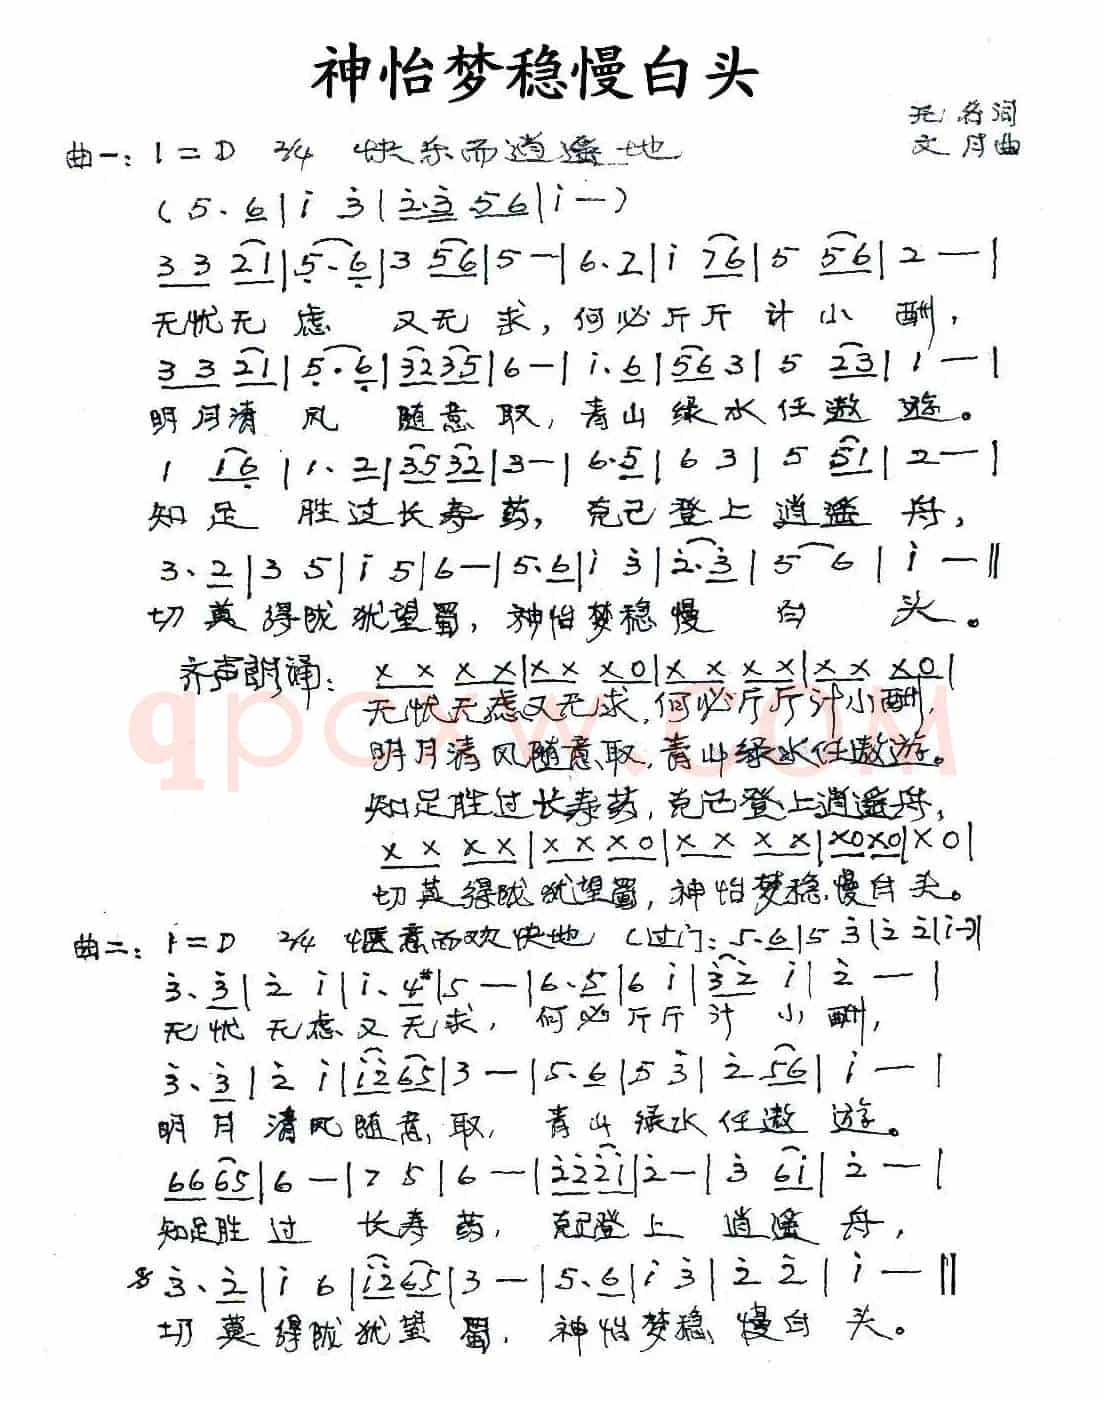 神怡梦稳慢白头
无名词
文月曲
曲一：1=D 2/4 快乐而逍遥地
(5. 6|i 3|2.3 56|i—)
3 3 21|5. 6|3 56|5—|6. 2|i 76|5 56|2—|
无忧无虑 又无求，何必斤斤计小酬，
3 3 21|5. 6|3235|6—|i. 6|563|5 23|1—|
明月清风 随意取，青山绿水任遨游。
1 16|1. 2|3532|3—|6.5|6 3|5 51|2—|
知足 胜过长寿药，克己登上逍遥舟，
3. 2|3 5|i 5|6—|5. 6|i 3|2.3|5 6|i—‖
切莫得陇犹望蜀，神怡梦稳慢 白 头。
齐声朗诵：x x x x|x x x 0|x x x x|x x x0|
无忧无虑又无求，何必斤斤计小酬，
明月清风随意取，青山绿水任遨游。
知足胜过长寿药，克己登上逍遥舟，
x x x x|x x x 0|x x x x|x0 x0|X 0|
切莫得陇犹望蜀，神怡梦稳慢白头。
曲二：1=D 2/4 惬意而欢快地 (过门：5. 6|5 3|2 2|i—)|
3. 3|2 i|i. 4#|5—|6. 5|6 i|32 i|2—|
无忧无虑又无求，何必斤斤计小酬，
3. 3|2 i|i265|3—|5. 6|5 3|2 56|i—|
明月清风随意取，青山绿水任遨游。
6665|6—|7 5|6—|222i|2—|3 6i|2—|
知足胜过 长寿药，克己登上 逍遥舟，
3. 2|i 6|i265|3—|5. 6|i 3|2 2|i—‖
切莫得陇犹望蜀，神怡梦稳慢白头。
qpcxw.com